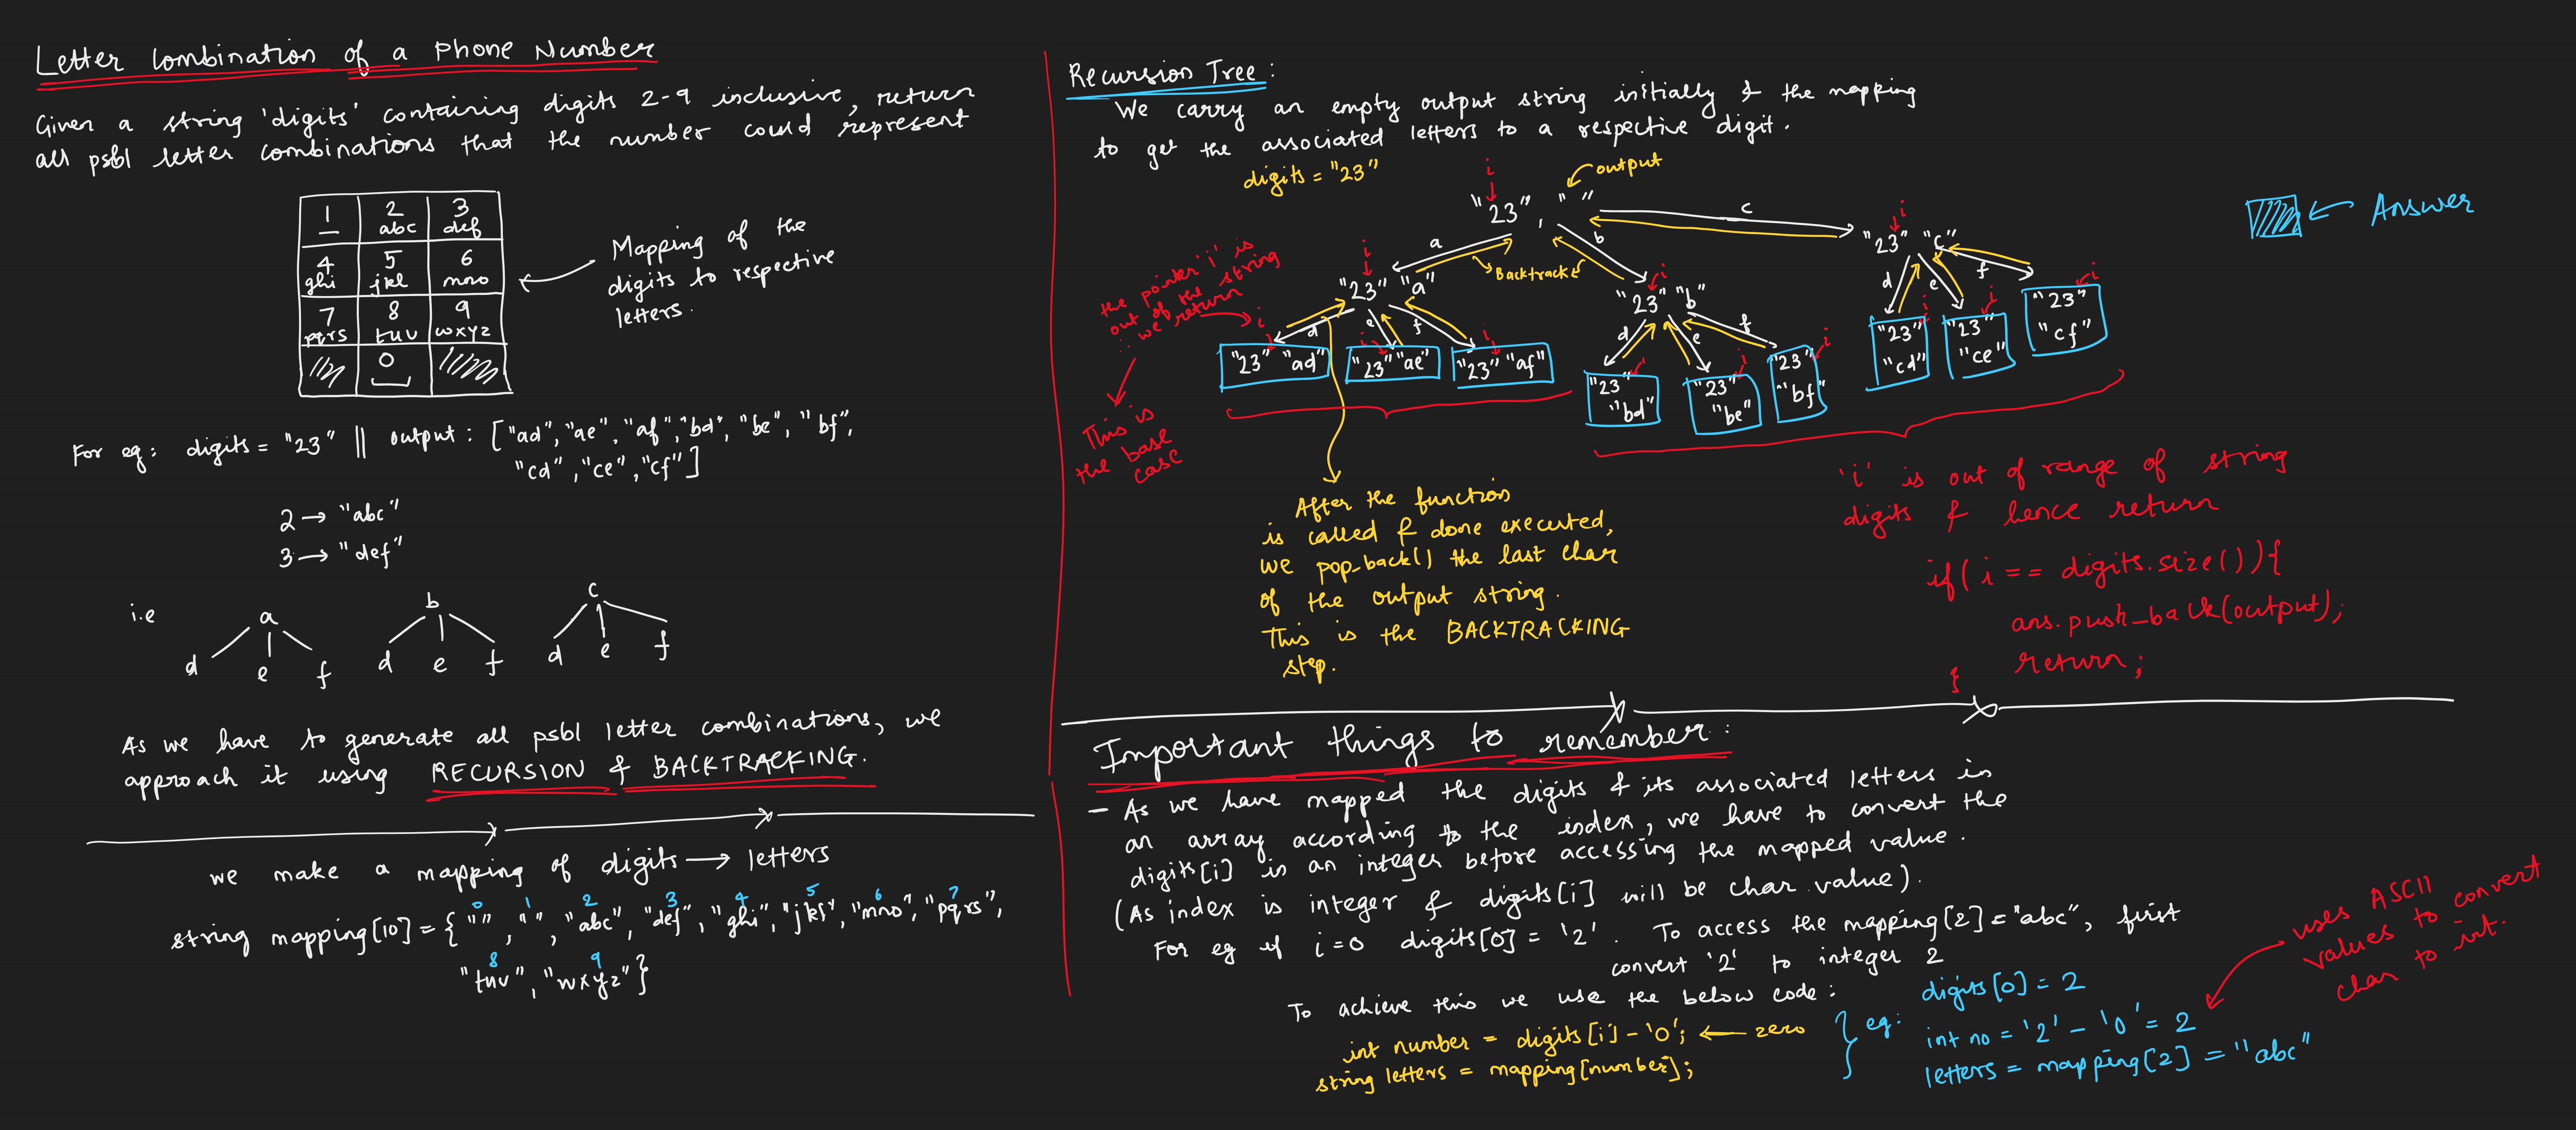 Letter Combination of a Phone Number
Given a string 'digits' containing digits 2-9 inclusive, return
all psbl letter combinations that the number could represent
1 2 3
abc def
4 5 6
ghi jkl mno
7 8 9
pqrs tuv wxyz
0
Mapping of the
digits to respective
letters.
For eg: digits = "23" || output: ["ad","ae","af","bd","be","bf",
"cd","ce","cf"]
2 → "abc"
3 → "def"
i.e
a b c
d e f d e f d e f
As we have to generate all psbl letter combinations, we
approach it using RECURSION & BACKTRACKING.
we make a mapping of digits → letters
0 1 2 3 4 5 6 7
string mapping[10] = {"","","abc","def","ghi","jkl","mno","pqrs",
8 9
"tuv","wxyz"}
Recursion Tree:
We carry an empty output string initially & the mapping
to get the associated letters to a respective digit.
digits = "23"
i
output
"23", " "
Answer
a b c
Backtrack
i
"23" "a"
i
"23" "b"
i
"23" "c"
d e f
d e f
d e f
the pointer 'i' is
out of the string
∴ we return
This is
the base
case
i i i
"23" "ad"
"23" "ae"
"23" "af"
i i i
"23"
"bd"
"23"
"be"
"23"
"bf"
i i i
"23"
"cd"
"23"
"ce"
"23"
"cf"
After the function
is called & done executed,
we pop_back() the last char
of the output string.
This is the BACKTRACKING
step.
'i' is out of range of string
digits & hence return
if(i == digits.size()){
ans.push_back(output);
return;
}
Important things to remember:
- As we have mapped the digits & its associated letters in
an array according to the index, we have to convert the
digits[i] is an integer before accessing the mapped value.
(As index is integer & digits[i] will be char value).
For eg if i=0 digits[0] = '2'. To access the mapping[2]="abc", first
convert '2' to integer 2
To achieve this we use the below code:
int number = digits[i]-'0'; ← zero
string letters = mapping[number];
eg: digits[0] = 2
int no = '2' - '0' = 2
letters = mapping[2] = "abc"
uses ASCII
values to convert
char to int.